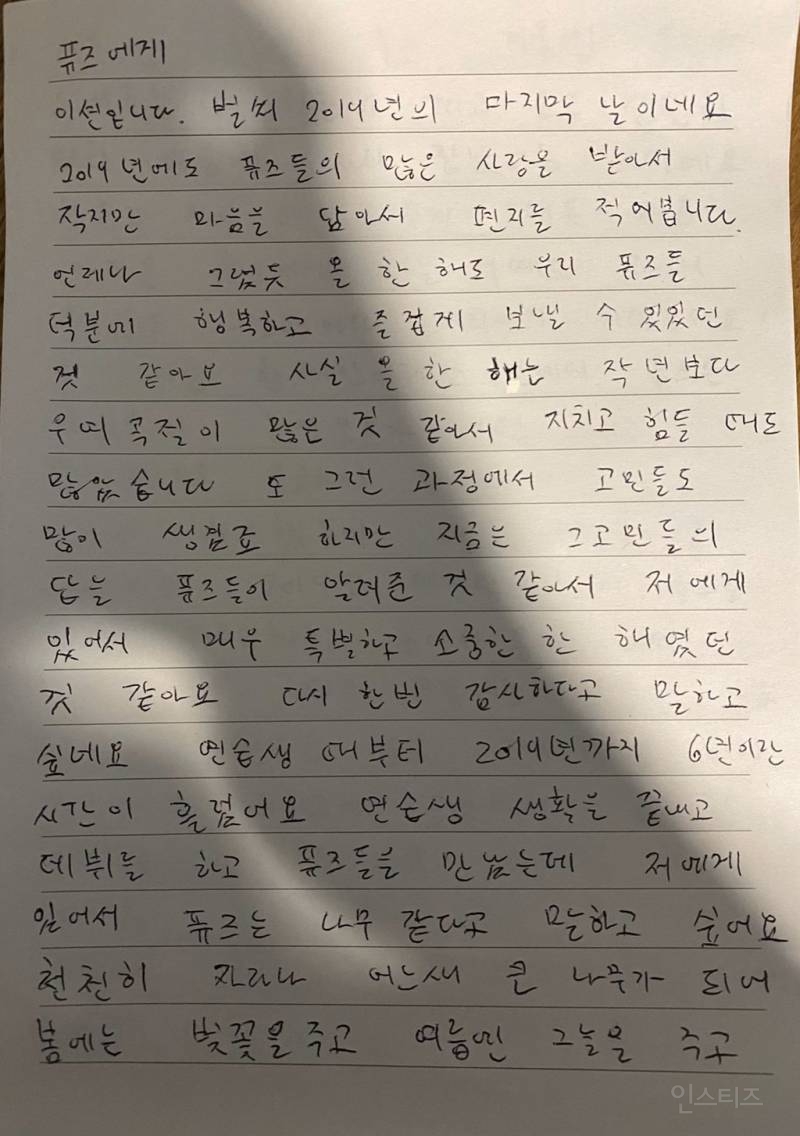 퓨즈에게
이션입니다. 벌써 2019년의 마지막 날이네요
2019년에도 퓨즈들의 많은 사랑을 받아서
작지만 마음을 담아서 편지를 적어봅니다.
언제나 그렇듯 올 한 해도 우리 퓨즈들
덕분에 행복하고 즐겁게 보낼 수 있었던
것 같아요 사실 올 한 해는 작년보다
우여곡절이 많은 것 같아서 지치고 힘들 때도
많았습니다 또 그런 과정에서 고민들도
많이 생겼죠 하지만 지금은 그 고민들의
답을 퓨즈들이 알려준 것 같아서 저에게
있어서 매우 특별하고 소중한 한 해였던
것 같아요 다시 한번 감사하다고 말하고
싶네요 연습생 때부터 2019년까지 6년이란
시간이 흘렀어요 연습생 생활을 끝내고
데뷔를 하고 퓨즈들을 만났는데 저에게
있어서 퓨즈는 나무 같다고 말하고 싶어요
천천히 자라나 어느새 큰 나무가 되어
봄에는 벚꽃을 주고 여름엔 그늘을 주고
인스티즈